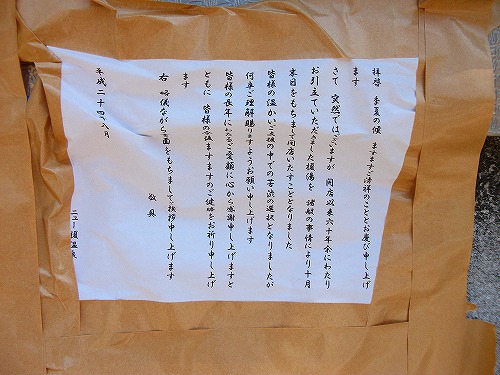 拝啓 季夏の候 ますますご清祥のこととお慶び申し上げ
ます
さて 突然ではございますが 開店以来六十年余にわたり
お引立ていただきました損傷を 諸般の事情により十月
末日をもちまして閉店いたすこととなりました
皆様の温かいご支援の中での苦渋の選択となりましたが
何卒ご理解賜りますようお願い申し上げます
皆様の長年にわたるご愛顧に心から感謝申し上げますと
ともに 皆様の益々ますますのご健勝をお祈り申し上げ
ます
右 略儀ながら書面をもちまして挨拶申し上げます
敬具
平成二十四年八月
ニュー
温泉